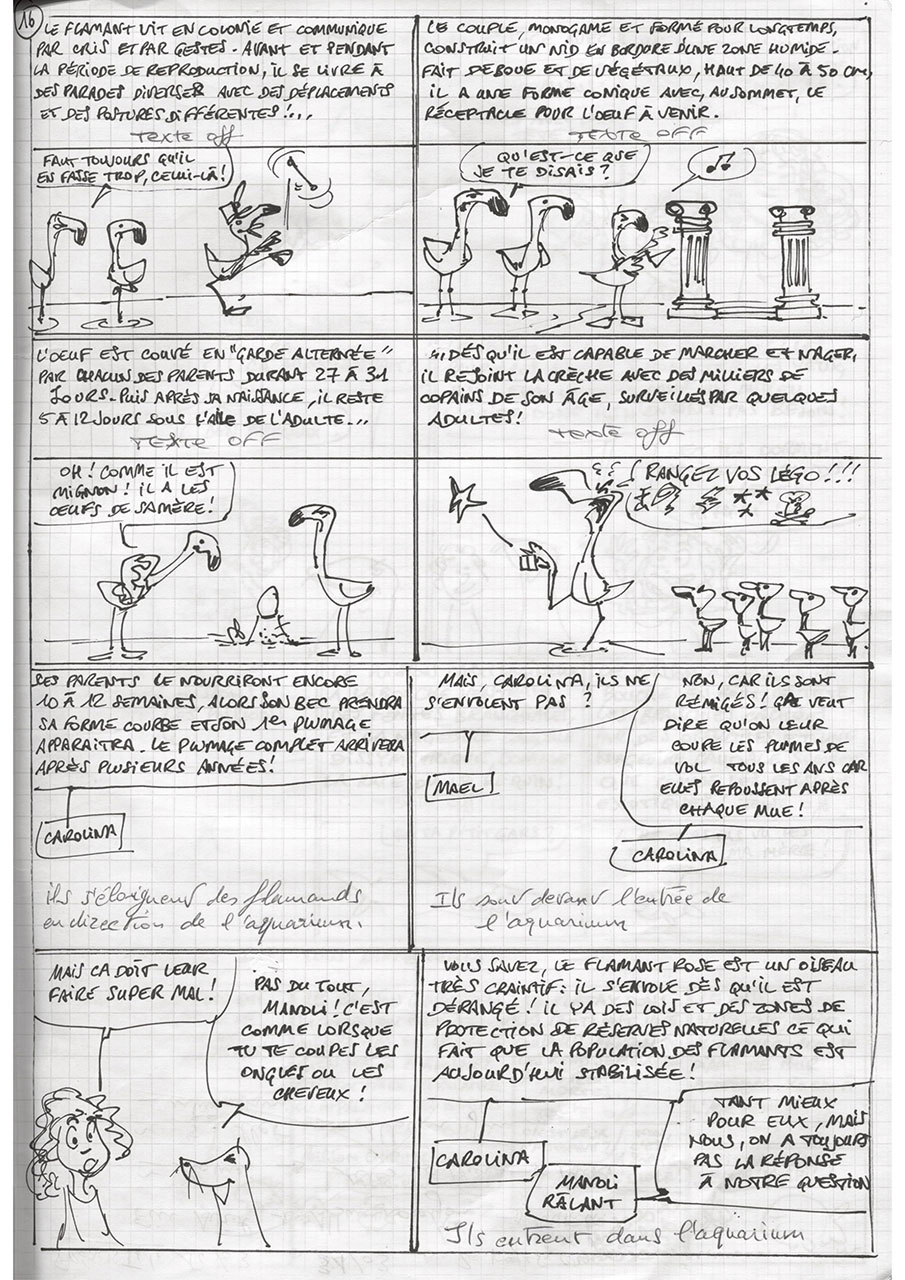 16
LE FLAMANT VIT EN COLONIE ET COMMUNIQUE
PAR CRIS ET PAR GESTES. AVANT ET PENDANT
LA PÉRIODE DE REPRODUCTION, IL SE LIVRE À
DES PARADES DIVERSES AVEC DES DÉPLACEMENTS
ET DES POSTURES DIFFÉRENTES!...
Texte off
FAUT TOUJOURS QU'IL
EN FASSE TROP, CELUI-LÀ!
LE COUPLE, MONOGAME ET FORMÉ POUR LONGTEMPS,
CONSTRUIT UN NID EN BORDURE D'UNE ZONE HUMIDE.
FAIT DE BOUE ET DE VÉGÉTAUX, HAUT DE 40 À 50 CM,
IL A UNE FORME CONIQUE AVEC, AU SOMMET, LE
RÉCEPTACLE POUR L'OEUF À VENIR.
TEXTE OFF
QU'EST-CE QUE
JE TE DISAIS?
L'OEUF EST COUVÉ EN "GARDE ALTERNÉE"
PAR CHACUN DES PARENTS DURANT 27 À 31
JOURS. PUIS APRÈS SA NAISSANCE, IL RESTE
5 À 12 JOURS SOUS L'AILE DE L'ADULTE...
TEXTE OFF
OH! COMME IL EST
MIGNON! IL A LES
OEUFS DE SA MÈRE!
DÉS QU'IL EST CAPABLE DE MARCHER ET NAGER,
IL REJOINT LA CRÈCHE AVEC DES MILLIERS DE
COPAINS DE SON ÂGE, SURVEILLÉS PAR QUELQUES
ADULTES!
Texte off
RANGEZ VOS LÉGO!!!
SES PARENTS LE NOURRIRONT ENCORE
10 À 12 SEMAINES, ALORS SON BEC PRENDRA
SA FORME COURBE ET SON 1er PLUMAGE
APPARAITRA. LE PLUMAGE COMPLET ARRIVERA
APRÈS PLUSIEURS ANNÉES!
CAROLINA
ils s'éloignent des flamands
en direction de l'aquarium.
MAIS, CAROLINA, ILS NE
S'ENVOLENT PAS ?
MAEL
NON, CAR ILS SONT
RÉMIGÉS! ÇA VEUT
DIRE QU'ON LEUR
COUPE LES PLUMES DE
VOL TOUS LES ANS CAR
ELLES REPOUSSENT APRÈS
CHAQUE MUE!
CAROLINA
Ils sont devant l'entrée de
l'aquarium
MAIS CA DOIT LEUR
FAIRE SUPER MAL!
PAS DU TOUT,
MANOLI! C'EST
COMME LORSQUE
TU TE COUPES LES
ONGLES OU LES
CHEVEUX!
VOUS SAVEZ, LE FLAMANT ROSE EST UN OISEAU
TRÈS CRAINTIF: IL S'ENVOLE DÈS QU'IL EST
DÉRANGÉ! IL Y A DES LOIS ET DES ZONES DE
PROTECTION DE RÉSERVES NATURELLES CE QUI
FAIT QUE LA POPULATION DES FLAMANTS EST
AUJOURD'HUI STABILISÉE!
CAROLINA
TANT MIEUX
POUR EUX, MAIS
NOUS, ON A TOUJOURS
PAS LA RÉPONSE
À NOTRE QUESTION
MANOLI
RÂLANT
Ils entrent dans l'aquarium